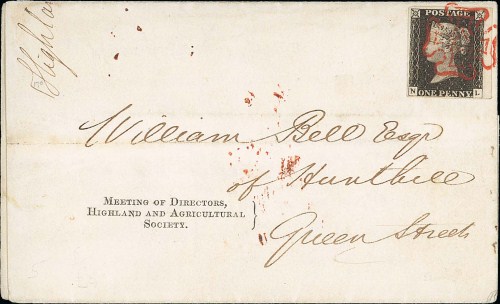 Highlan
POSTAGE
N L
ONE PENNY
William Bell Esqr
of Hunthill
MEETING OF DIRECTORS,
HIGHLAND AND AGRICULTURAL
SOCIETY.
Queen Street